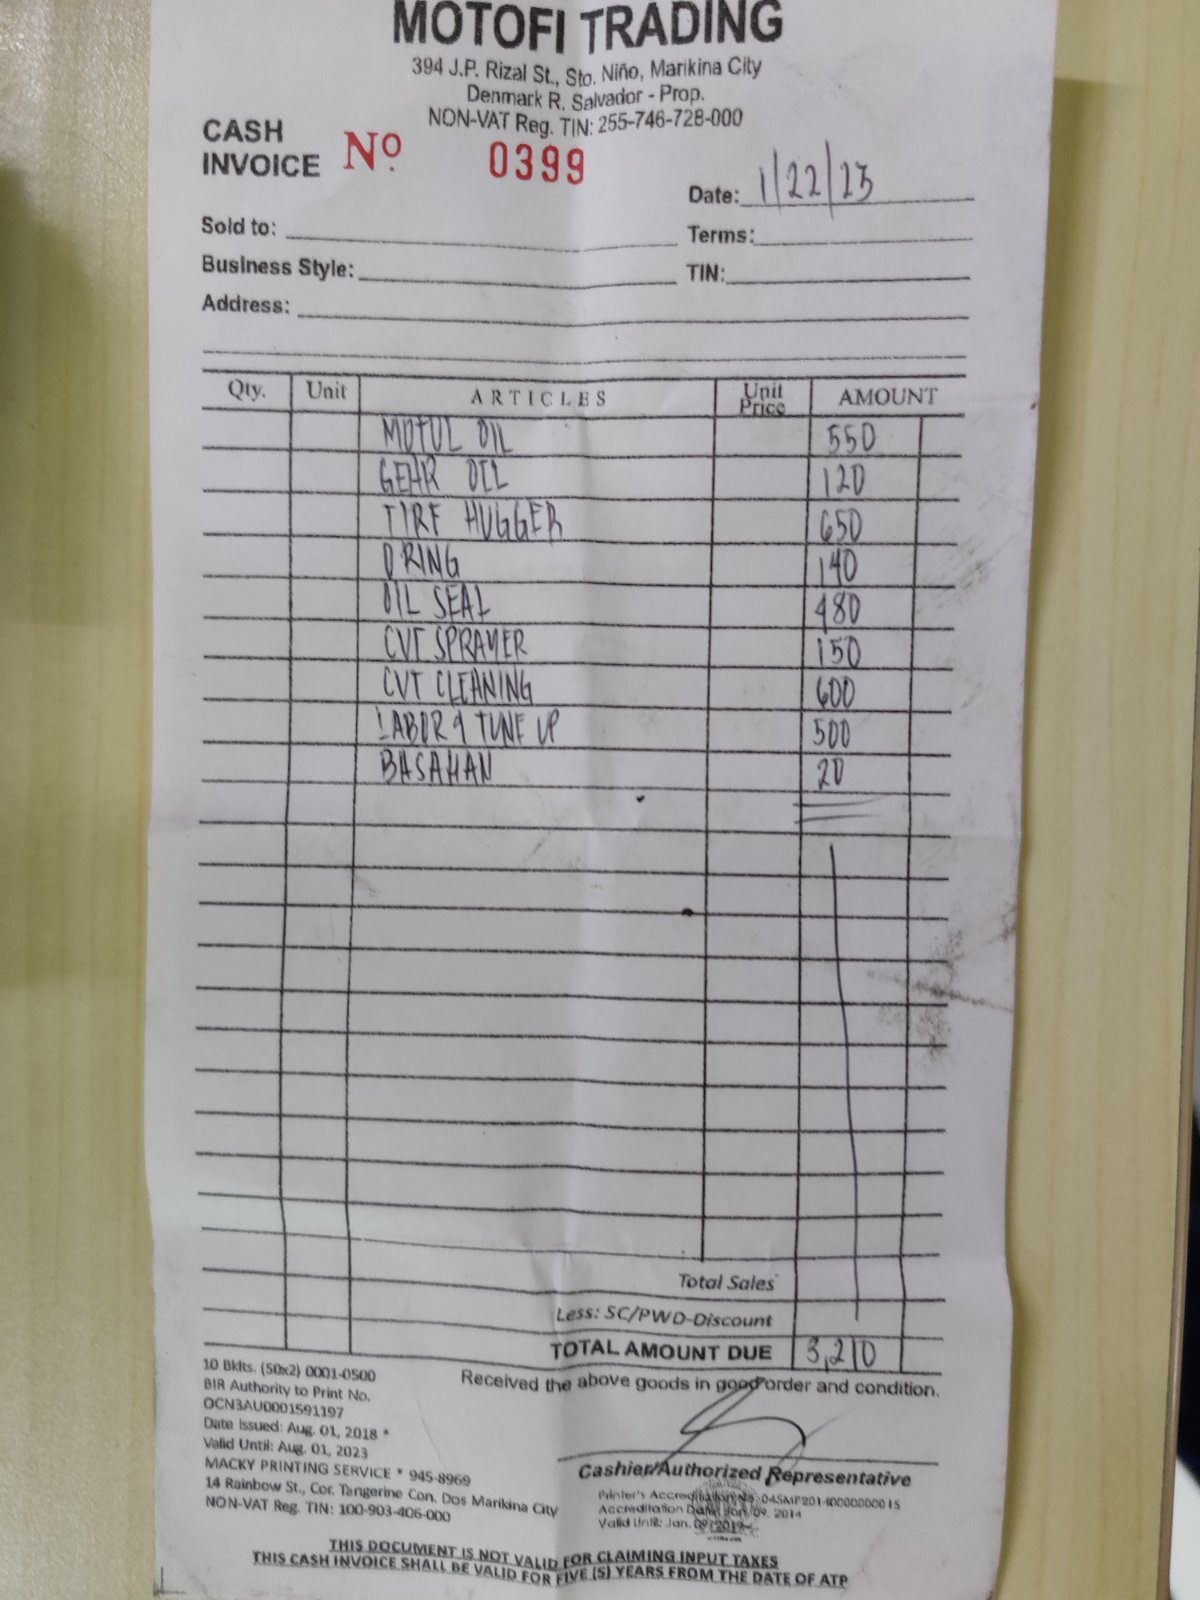 MOTOFI TRADING
394 J.P. Rizal St., Sto. Niño, Marikina City
Denmark R. Salvador - Prop.
NON-VAT Reg. TIN: 255-746-728-000
CASH INVOICE Nº 0399
Date: 1/22/23
Sold to: Terms:
Business Style: TIN:
Address:
Qty. Unit ARTICLES Unit Price AMOUNT
MOTUL OIL 550
GEAR OIL 120
TIRE HUGGER 650
O RING 140
OIL SEAL 480
CVT SPRAYER 150
CVT CLEANING 600
LABOR & TUNE UP 500
BASAHAN 20
Total Sales
Less: SC/PWD-Discount
TOTAL AMOUNT DUE 3,210
Received the above goods in good order and condition.
10 Bklts. (50x2) 0001-0500
BIR Authority to Print No.
OCN3AU0001591197
Date Issued: Aug. 01, 2018 *
Valid Until: Aug. 01, 2023
MACKY PRINTING SERVICE * 945-8969
14 Rainbow St., Cor. Tangerine Con. Dos Marikina City
NON-VAT Reg. TIN: 100-903-406-000
Cashier/Authorized Representative
Printer's Accreditation No.
Accreditation Date: Jan. 09, 2014
Valid Until: Jan. 09, 2019
THIS DOCUMENT IS NOT VALID FOR CLAIMING INPUT TAXES
THIS CASH INVOICE SHALL BE VALID FOR FIVE (5) YEARS FROM THE DATE OF ATP